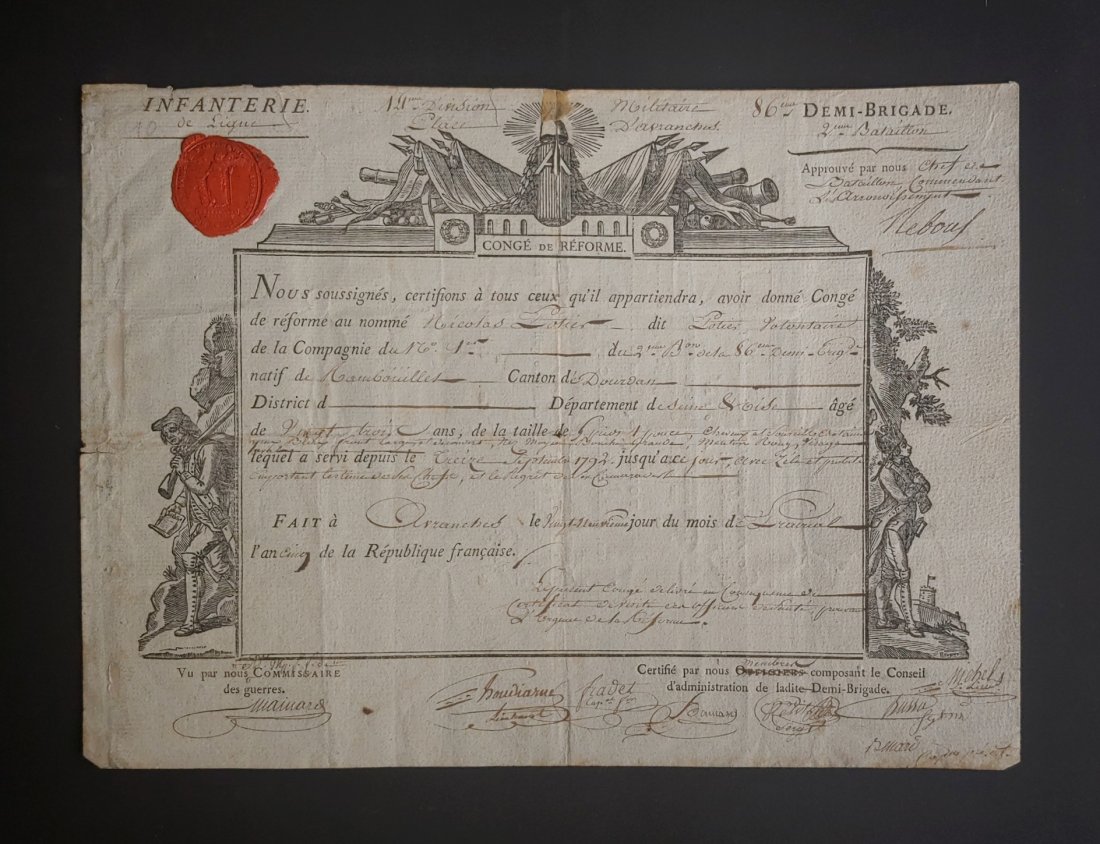 INFANTERIE.
de Ligne
14eme Division Militaire
Place D'avranches
86eme DEMI-BRIGADE.
2eme Bataillon
Approuvé par nous Chef de
Bataillon Commendant
L'Arrondissement
Reboul
CONGÉ DE RÉFORME.
Nous soussignés, certifions à tous ceux qu'il appartiendra, avoir donné Congé
de réforme au nommé Nicolas Potier dit Potier, Volontaire
de la Compagnie du N.o 1ere du 2eme Bon de la 86eme Demi-Brigde
natif de Rambouillet Canton de Dourdan
District d Département de Seine & Oise âgé
de Vingt trois ans, de la taille de 5 pieds 4 pouce, Cheveux et Sourcils Chatains
yeux front nez Moyen Bouche Grande Menton Rond, Visage
lequel a servi depuis le Treize Septembre 1792 jusqu'à ce jour, avec Zèle et
emportant l'estime de Ses Chefs, et le Regret de Ses Camarades
FAIT à Avranches le Vingt Neuvieme jour du mois de Prairial
l'an Cinq de la République française.
Le present Congé delivré en Consequence du
Certificat de Visite des officiers de Santé,
L'Urgence de la Réforme.
Vu par nous COMMISSAIRE
des guerres.
Certifié par nous OFFICIERS membres composant le Conseil
d'administration de ladite Demi-Brigade.
Michel